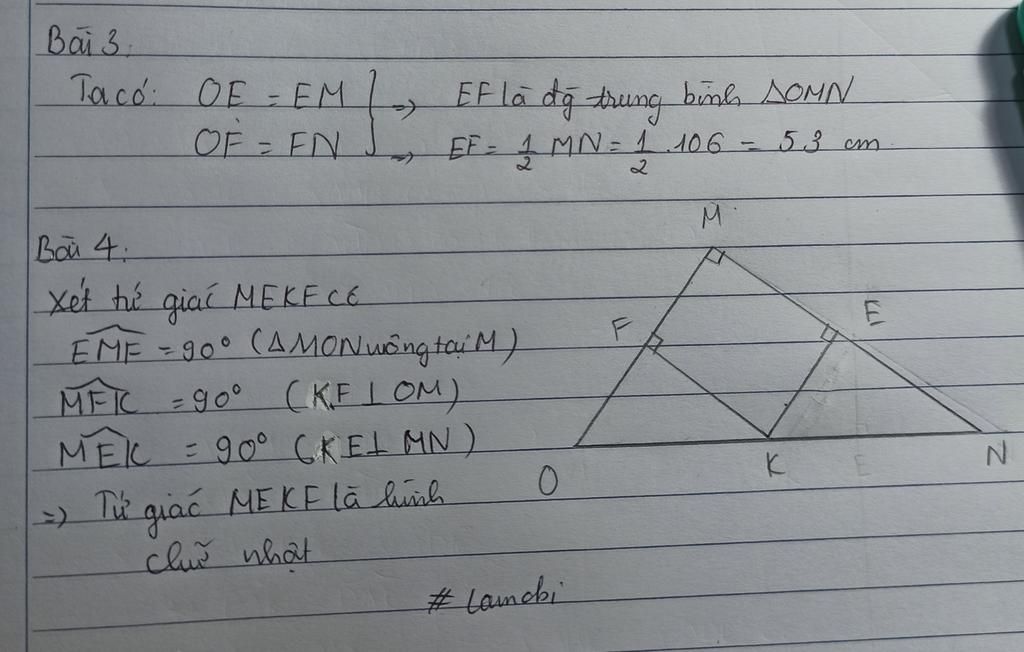 Bài 3.
Ta có: OE = EM } => EF là đg trung bình ΔOMN
OF = FN } => EF = 1/2 MN = 1/2 . 106 = 53 cm
Bài 4:
Xét tứ giác MEKF có
EMF = 90° (ΔMON vuông tại M)
MFK = 90° (KF ⊥ OM)
MEK = 90° (KE ⊥ MN)
=> Tứ giác MEKF là hình
chữ nhật
# lamchi
M
F
E
O
K
E
N